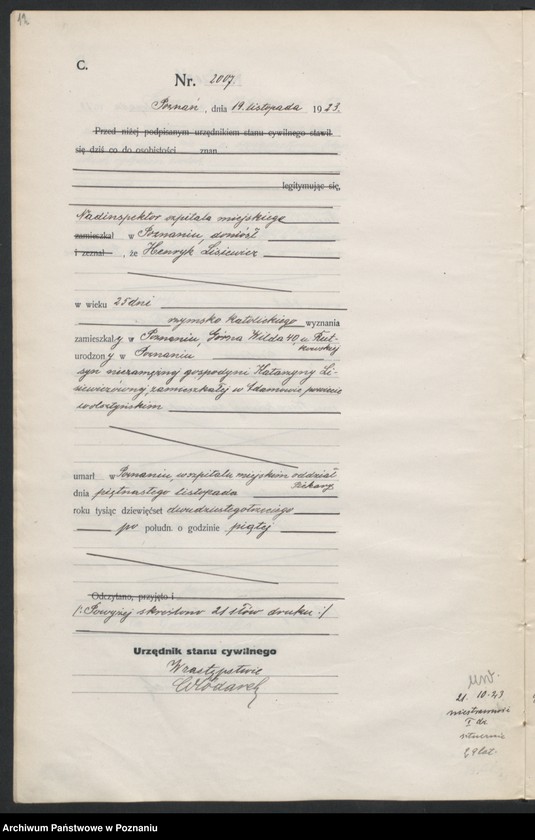 12
C.
Nr. 2007
Poznań, dnia 19. listopada 1923.
Przed niżej podpisanym urzędnikiem stanu cywilnego stawił
się dziś co do osobistości znan
legitymując się,
Nadinspektor szpitala miejskiego
zamieszkał w Poznaniu, doniósł
i zeznał, że Henryk Lisiewicz
w wieku 25 dni
rzymsko katolickiego wyznania
zamieszkały w Poznaniu, Górna Wilda 40, u Rut-
kowskiej
urodzony w Poznaniu
syn niezamężnej gospodyni Katarzyny Li-
siewiczówny, zamieszkałej w Adamowie, powiecie
wolsztyńskim
umarł w Poznaniu, w szpitalu miejskim oddział
Piekary
dnia piętnastego listopada
roku tysiąc dziewięćset dwudziestego trzeciego
po połudn. o godzinie piątej
Odczytano, przyjęto i
/: Powyżej skreślono 21 słów druku :/
Urzędnik stanu cywilnego
W zastępstwie
Włodarek
21. 10. 23
I dz.
Archiwum Państwowe w Poznaniu